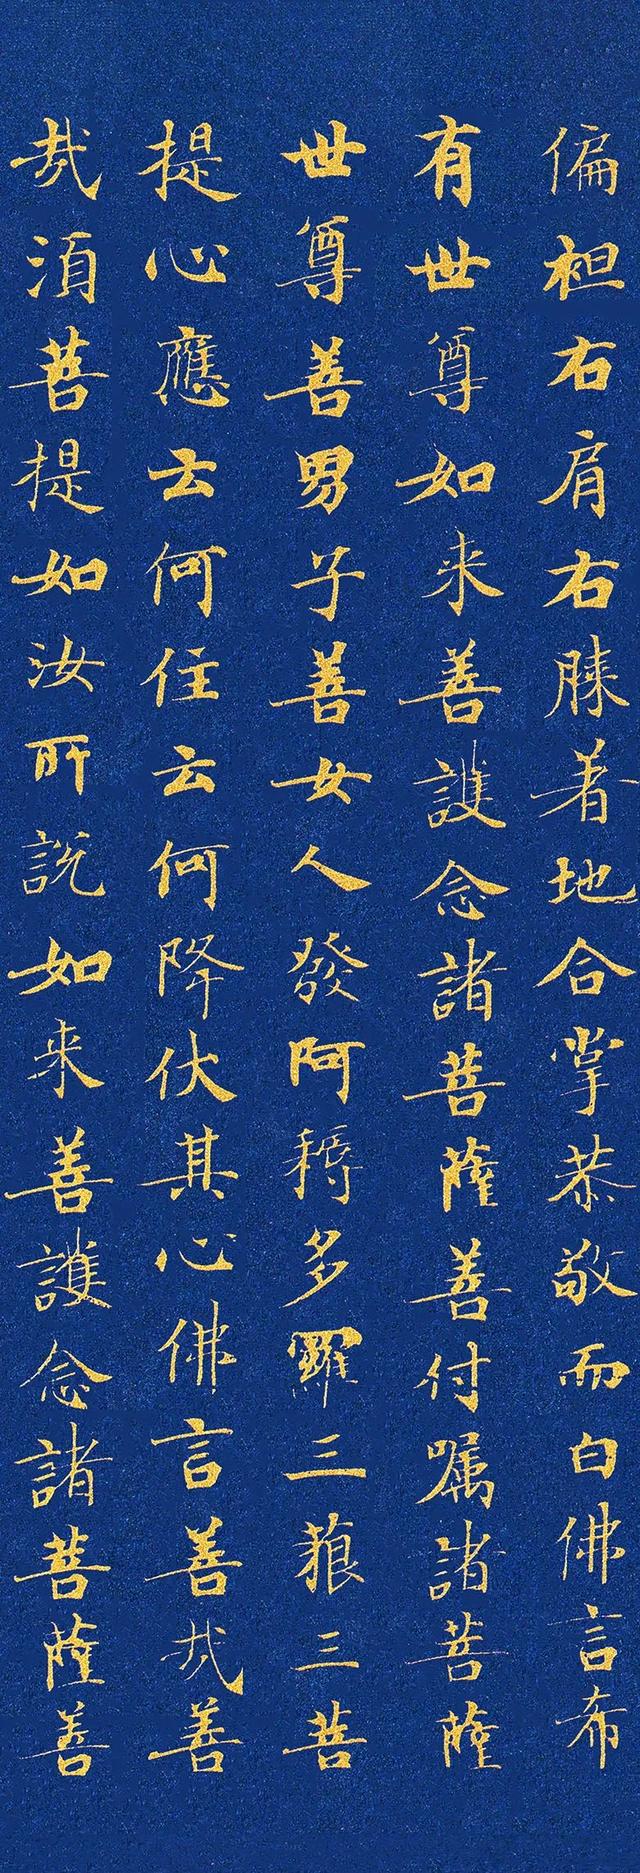 偏袒右肩右膝著地合掌恭敬而白佛言希
有世尊如来善護念諸菩薩善付嘱諸菩薩
世尊善男子善女人發阿耨多羅三藐三菩
提心應云何住云何降伏其心佛言善哉善
哉須菩提如汝所說如来善護念諸菩薩善